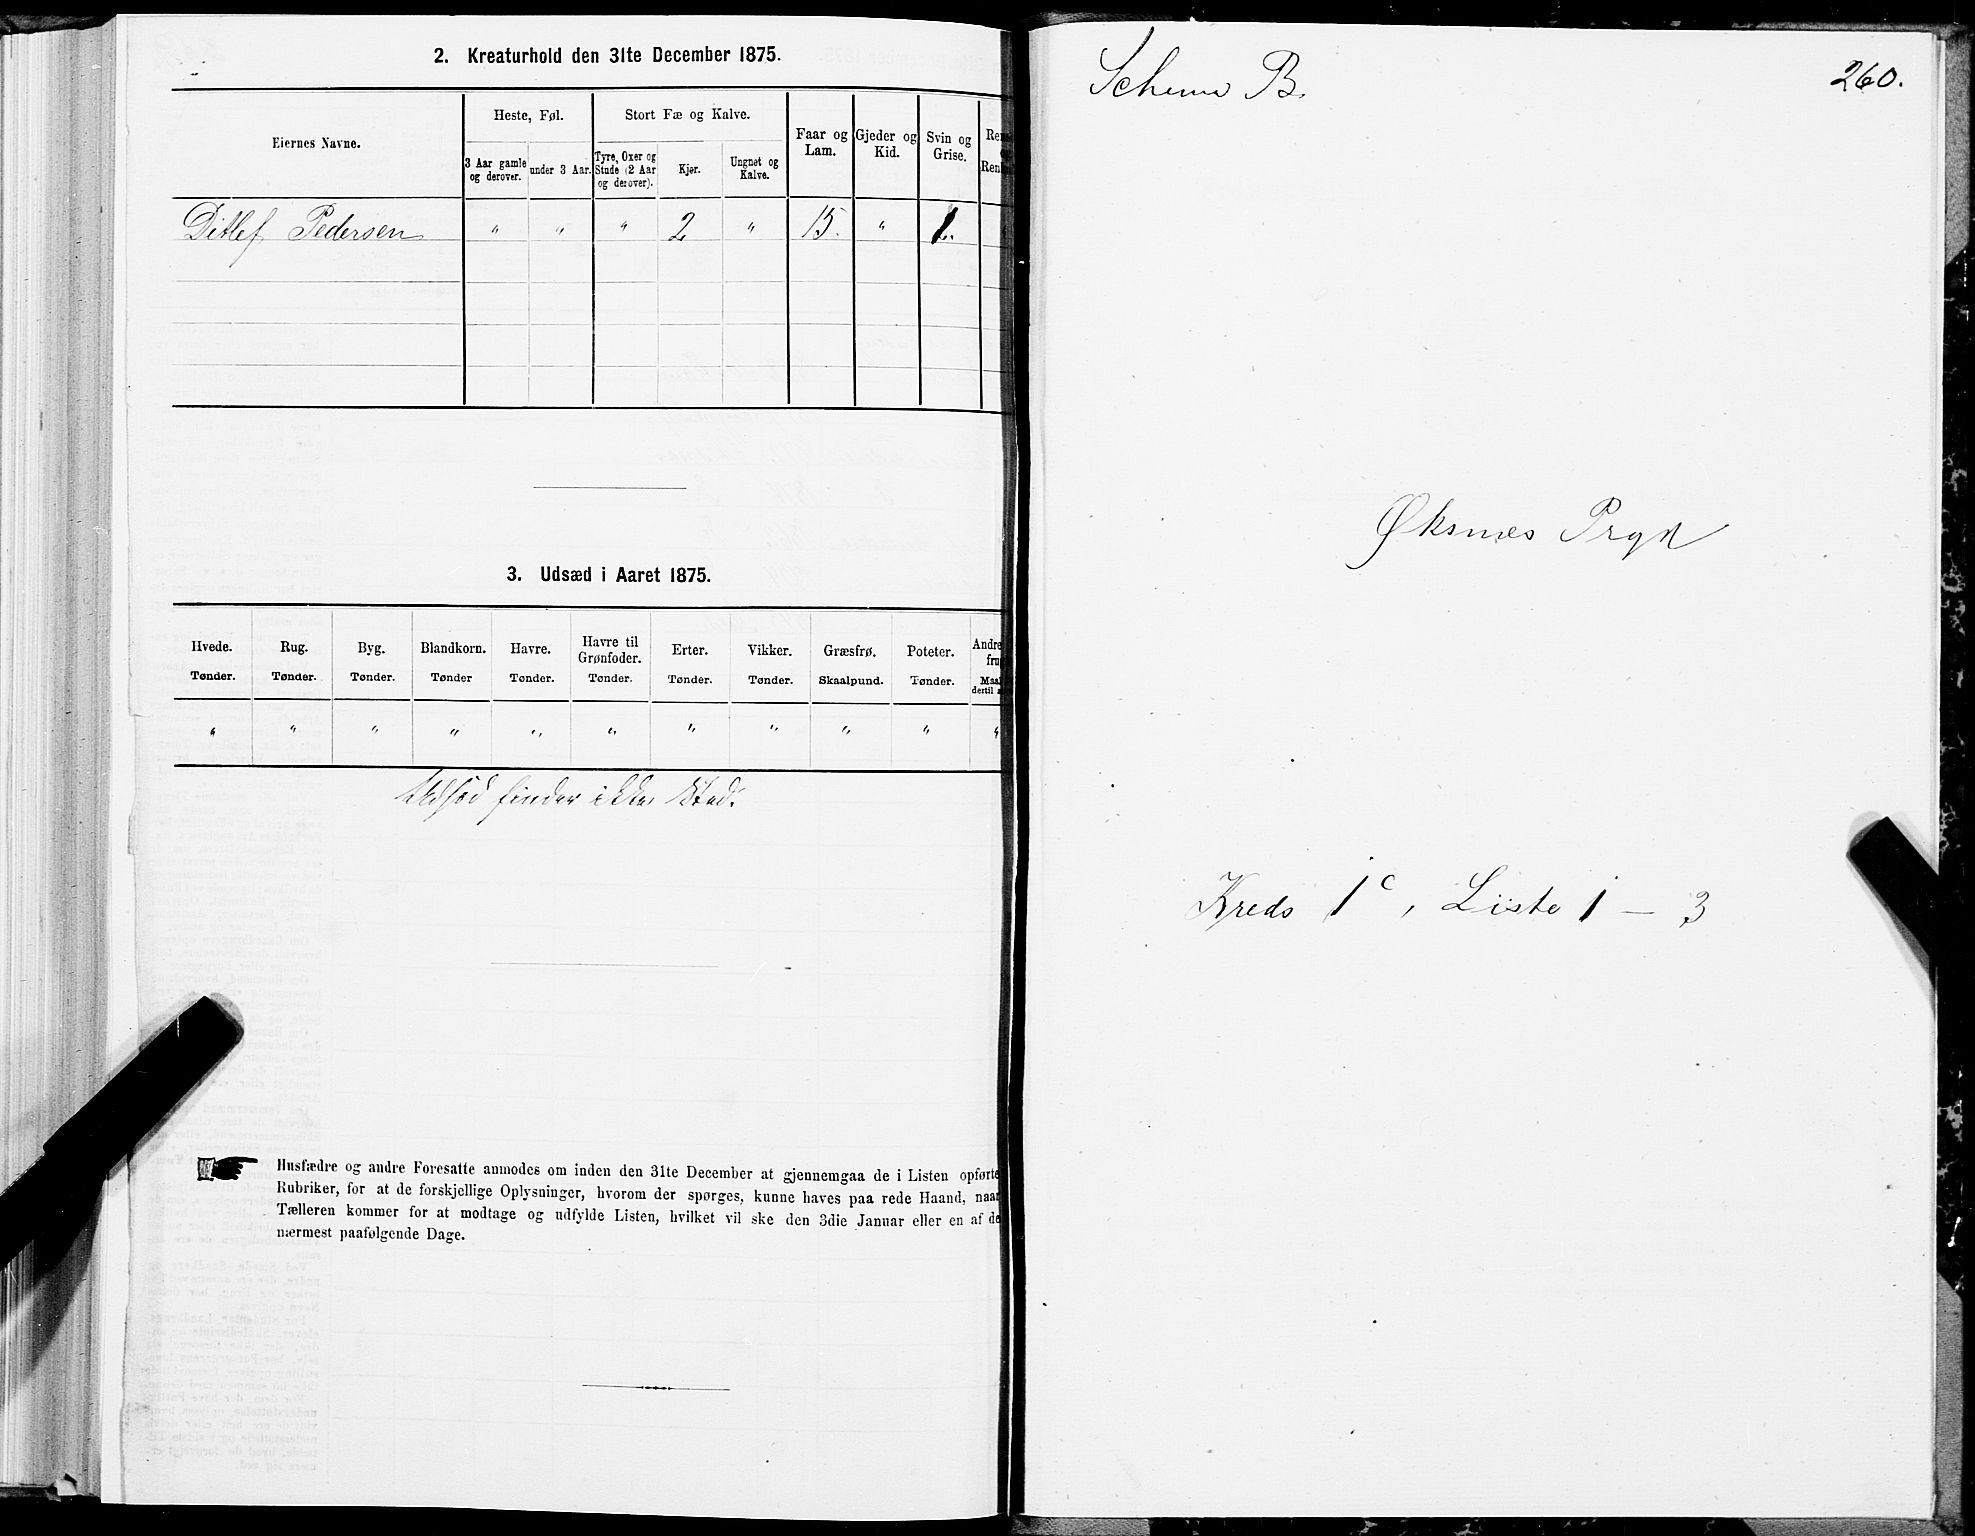 2. Kreaturhold den 31te December 1875.
Eiernes Navne.
Heste, Føl.
Stort Fæ og Kalve.
Faar og Lam.
Gjeder og Kid.
Svin og Grise.
3 Aar gamle og derover.
under 3 Aar.
Tyre, Oxer og Stude (2 Aar og derover).
Kjør.
Ungnøt og Kalve.
Ditlef Pedersen " " " 2 " 15. " 1.
3. Udsæd i Aaret 1875.
Hvede. Rug. Byg. Blandkorn. Havre. Havre til Grønfoder. Erter. Vikker. Græsfrø. Poteter. Andre
Tønder. Tønder. Tønder. Tønder Tønder. Tønder. Tønder. Tønder. Skaalpund. Tønder.
" " " " " " " " " " "
Udsæd finder ikke Sted.
Husfædre og andre Foresatte anmodes om inden den 31te December at gjennemgaa de i Listen opførte
Rubriker, for at de forskjellige Oplysninger, hvorom der spørges, kunne haves paa rede Haand, naar
Tælleren kommer for at modtage og udfylde Listen, hvilket vil ske den 3die Januar eller en af de
nærmest paafølgende Dage.
Schema B.
260.
Øksnes Prgd
Kreds 1c, Liste 1 — 3